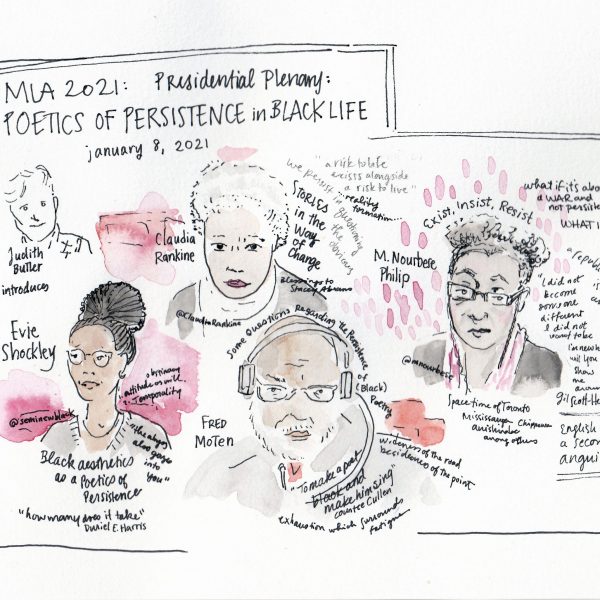 MLA 2021: Presidential Plenary:
POETICS OF PERSISTENCE in BLACK LIFE
january 8, 2021
Judith
Butler
introduces
Claudia
Rankine
@ClaudiaRankine
"a risk to life
exists alongside
a risk to live"
reality
formation...
We persist in questioning
the obvious
STORIES
in the
Way
of
Change
Blessings to
Stacey Abrams
M. Nourbese
Philip
Exist, Insist, Resist
@mnourbese
Space time of Toronto
Mississauga Chippewa
anishnabe
among others
what if it's abo
a WAR and
not persiste
WHAT I
a republi
"I did not
become
someone
different
I did not
want to be
I'm new he
will you
show
me
aroun
Gil Scott-He
English
a secon
angui
Evie
Shockley
@seminewblack
obstinacy
attitude or will.
2. Temporality
"the abyss
also gazes
into
you"
Black aesthetics
as a Poetics of
Persistence
"how many does it take"
Duriel E. Harris
FRED
MOTEN
Some Questions Regarding the Persistence
of (Black)
Poetry
"To make a poet
black and
make him sing"
Countee Cullen
exhaustion which surrounds
fatigue
wideness of the road